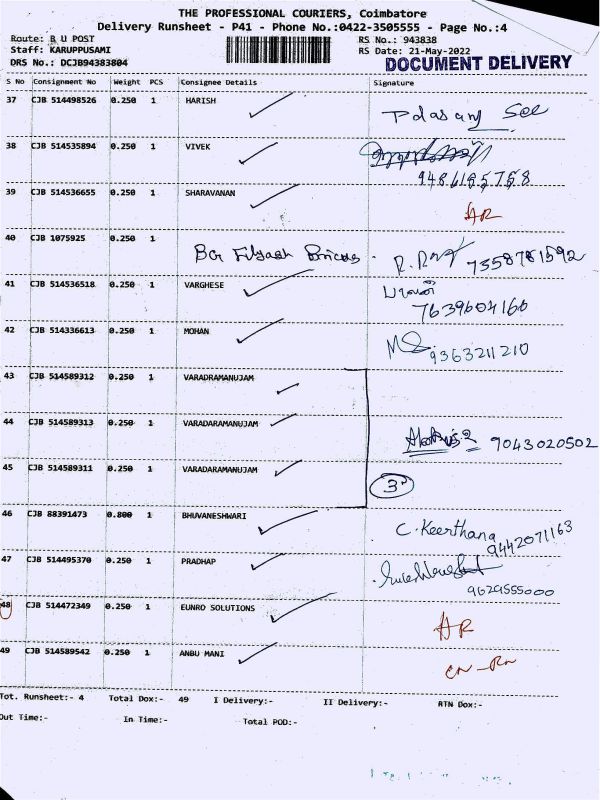 THE PROFESSIONAL COURIERS, Coimbatore
Delivery Runsheet - P41 - Phone No.:0422-3505555 - Page No.:4
Route: B U POST RS No.: 943838
Staff: KARUPPUSAMI RS Date: 21-May-2022
DRS No.: DCJB94383804 DOCUMENT DELIVERY
S No Consignment No Weight PCS Consignee Details Signature
37 CJB 514498526 0.250 1 HARISH
38 CJB 514535894 0.250 1 VIVEK
9486185758
39 CJB 514536655 0.250 1 SHARAVANAN
AR
40 CJB 1075925 0.250 1
7558781592
41 CJB 514536518 0.250 1 VARGHESE
7639604160
42 CJB 514336613 0.250 1 MOHAN
9363211210
43 CJB 514589312 0.250 1 VARADRAMANUJAM
44 CJB 514589313 0.250 1 VARADARAMANUJAM
9043020502
45 CJB 514589311 0.250 1 VARADARAMANUJAM
3
46 CJB 88391473 0.800 1 BHUVANESHWARI
C. Keerthana
9442071163
47 CJB 514495370 0.250 1 PRADHAP
9629555000
48 CJB 514472349 0.250 1 EUNRO SOLUTIONS
AR
49 CJB 514589542 0.250 1 ANBU MANI
Tot. Runsheet:- 4 Total Dox:- 49 I Delivery:- II Delivery:- RTN Dox:-
Out Time:- In Time:- Total POD:-